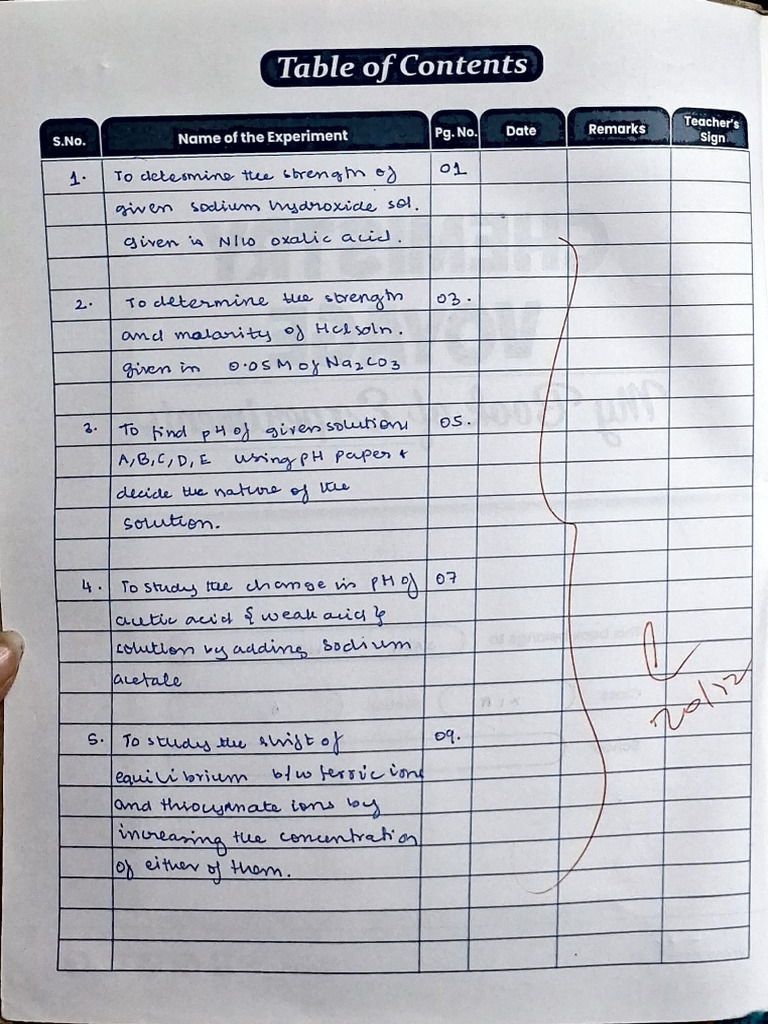 Table of Contents
S.No. Name of the Experiment Pg. No. Date Remarks Teacher's Sign
1. To determine the strength of 01
given sodium hydroxide sol.
given is N/10 oxalic acid.
2. To determine the strength 03.
and malarity of Hcl soln.
given in 0.05M of Na2CO3
3. To find pH of given solution 05.
A,B,C,D,E using pH paper &
decide the nature of the
solution.
4. To study the change in pH of 07
acetic acid { weak acid }
solution by adding sodium
acetate
5. To study the shift of 09.
equilibrium b/w ferric ions
and thiocynate ions by
increasing the concentration
of either of them.
20/12